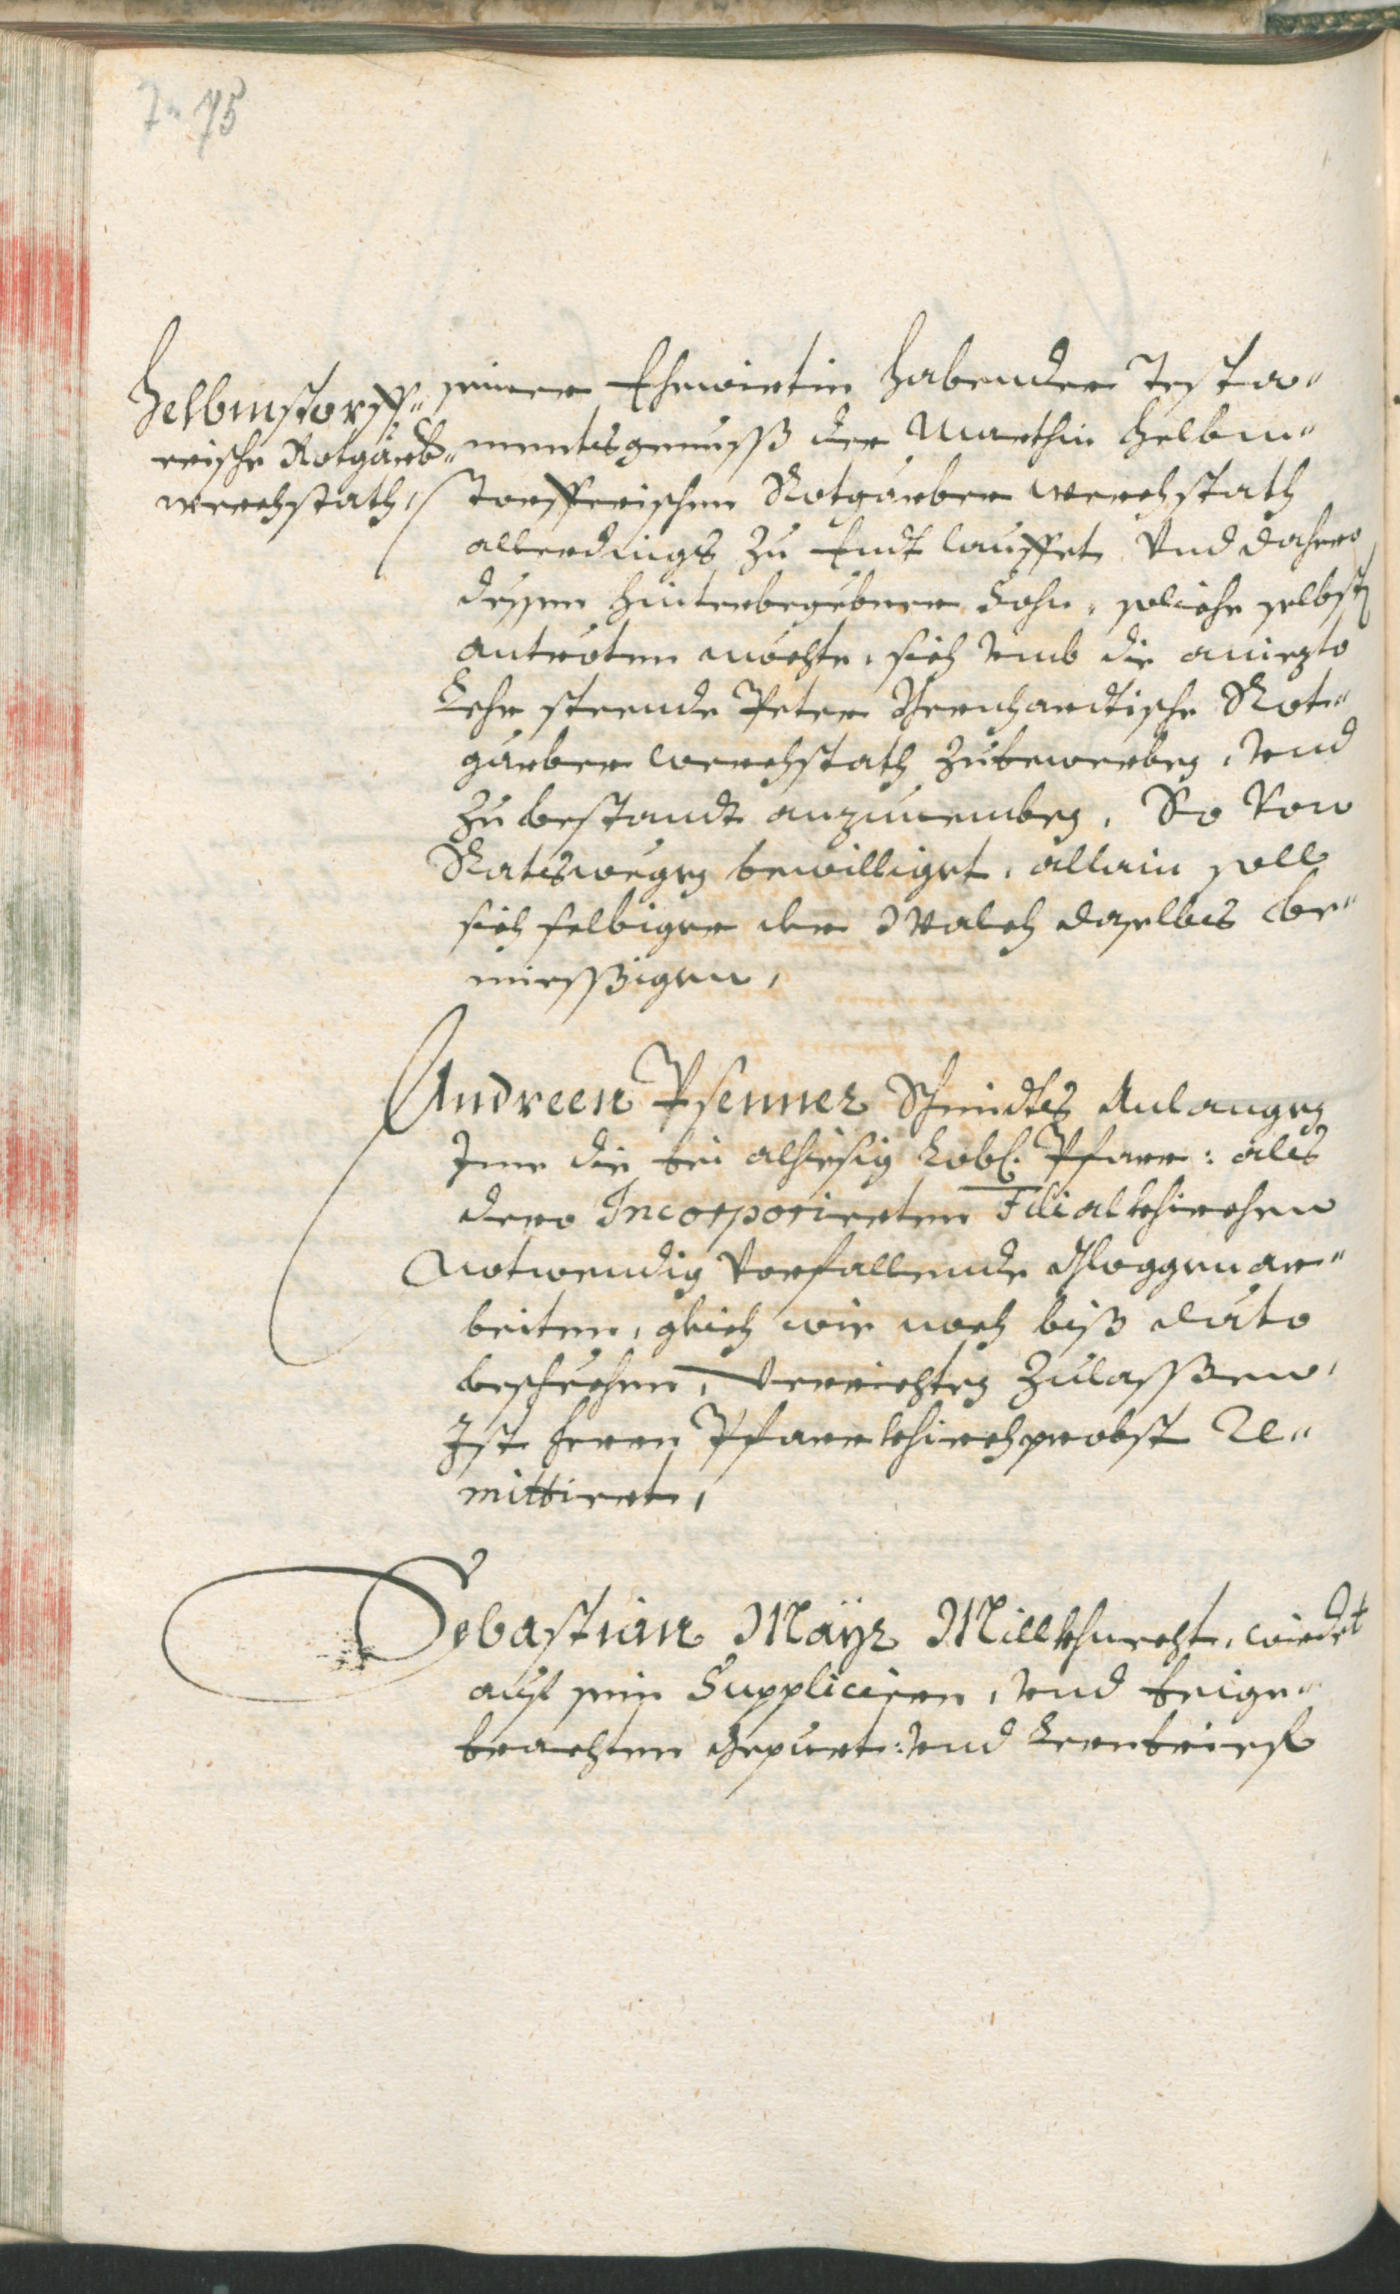 75
Helbmstorff„
erische Rotgärb„
werchstath,
seiner Ehewirtin habender Testa„
mentsgenuß der Marthin Helbm„
storfferischen Rotgärber werchstath
allerdings zu Endt lauffet, Vnd dahero
dessen hinterbegebner Sohn, solche selbst
antreten möchte, sich vmb die aniezto
Lehr steende Peter Pernhardtische Rot„
gärber werchstath zubewerben, vnd
zu bestandt anzunemben, So von
Ratswegen bewilliget, allain soll
sich selbiger der Walch daselbs be„
miessigen,
Andreen Psenner Schmidts Anlangen
Ime die bei alhiesig Lobl. Pfarr: als
dero Incorporierten Filialkhirchen
notwendig vorfallende Gloggenar„
beiten, gleich wie noch biß dato
beschechen, verrichten zulassen,
Ist herrn Pfarrkhirchprobst Re„
mittiert,
Sebastian Mayr Millkhnecht, wirdet
auf sein Supplicieren, vnd beige„
brachten Gepurt: vnd Lernbrief